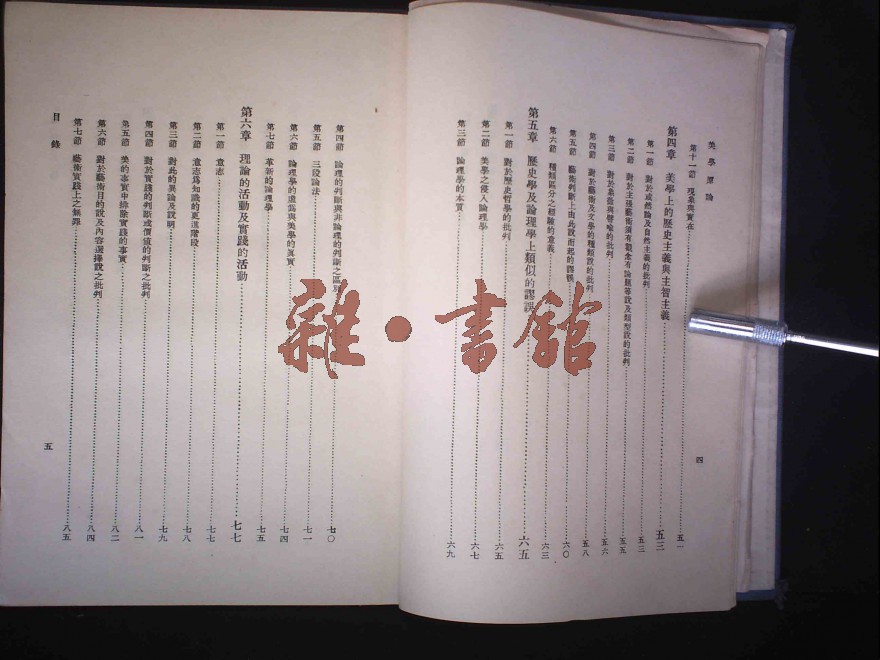 美學原論
第十一節 現象與實在 五一
第四章 美學上的歷史主義與主智主義 五三
第一節 對於或然論及自然主義的批判 五三
第二節 對於主張藝術須有觀念有論題等說及類型說的批判 五五
第三節 對於象徵與譬喻的批判 五六
第四節 對於藝術及文學的種類說的批判 五八
第五節 藝術判斷上由此說而起的謬誤 六〇
第六節 種類區分之經驗的意義 六三
第五章 歷史學及論理學上類似的謬誤 六五
第一節 對於歷史哲學的批判 六五
第二節 美學之侵入論理學 六七
第三節 論理學的本質 六九
四
第四節 論理的判斷與非論理的判斷之區別 七〇
第五節 三段論法 七一
第六節 論理學的虛僞與美學的眞實 七四
第七節 革新的論理學 七五
第六章 理論的活動及實踐的活動 七七
第一節 意志 七七
第二節 意志爲知識的更進階段 七八
第三節 對此的異論及說明 七九
第四節 對於實踐的判斷或價值的判斷之批判 八一
第五節 美的事實中排除實踐的事實 八二
第六節 對於藝術目的說及內容選擇說之批判 八四
第七節 藝術實踐上之無罪 八五
目錄
五
雜·書館